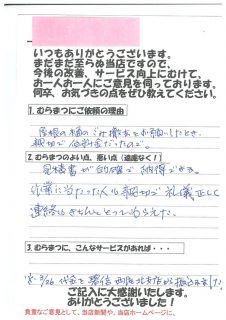 いつもありがとうございます。
まだまだ至らぬ当店ですので、
今後の改善、サービス向上にむけて、
お一人お一人にご意見を伺っております。
何卒、お気づきの点をぜひ教えてください。
1. むらまつにご依頼の理由
屋根の樋のごみ撤去をお願いしたとき、
親切で低料金だったので。
2. むらまつのよい点、悪い点（遠慮なく！）
見積書が的確で納得できる。
作業に当たった人も親切で礼儀正しく
連絡はきちんととってもらえた。
3. むらまつに、こんなサービスがあれば・・・
8/26 代金を
ご記入に大感謝いたします。
ありがとうございました！
貴重なご意見として、当店新聞や、当店ホームページに、